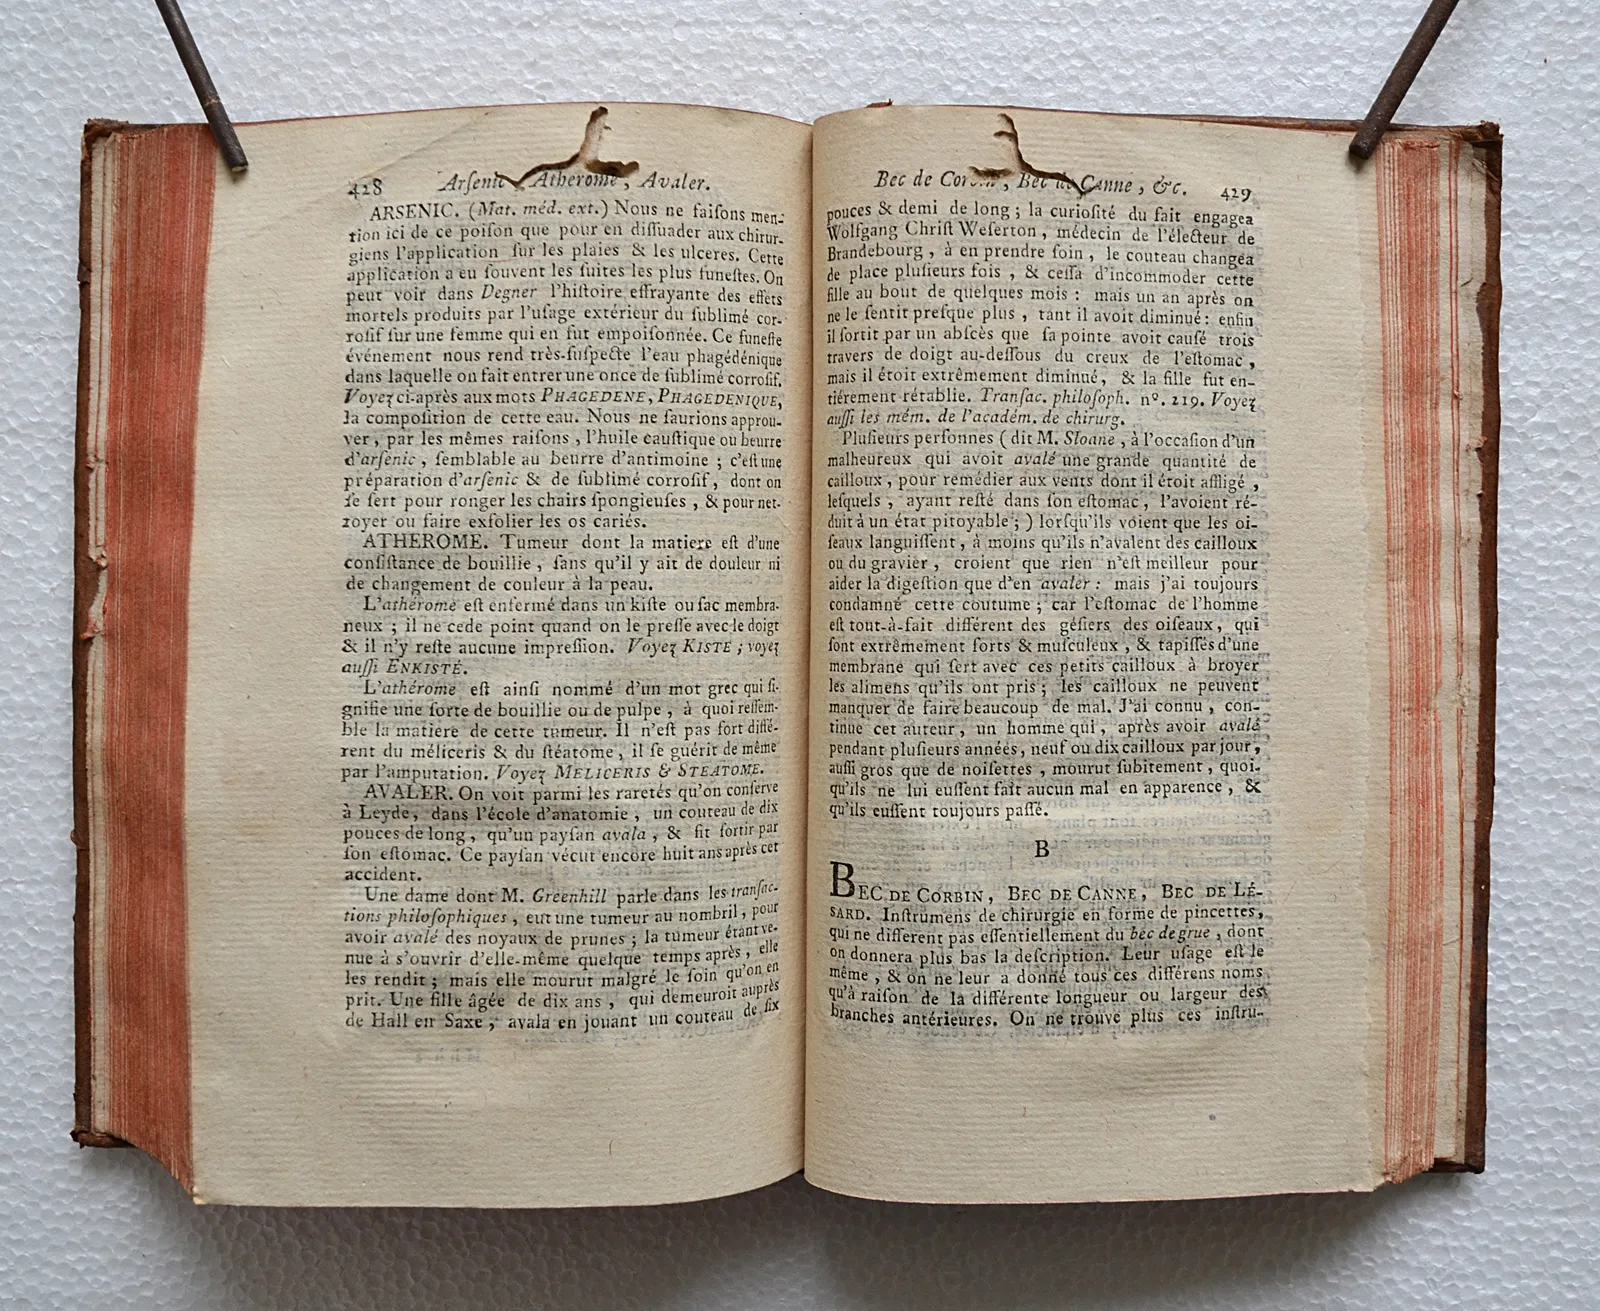 428 Arſenic, Atherome, Avaler.
ARSENIC. (Mat. méd. ext.) Nous ne faiſons men-
tion ici de ce poiſon que pour en diſſuader aux chirur-
giens l'application ſur les plaies & les ulceres. Cette
application a eu ſouvent les ſuites les plus funeſtes. On
peut voir dans Degner l'hiſtoire effrayante des effets
mortels produits par l'uſage extérieur du ſublimé cor-
roſif ſur une femme qui en fut empoiſonnée. Ce funeſte
événement nous rend très-ſuſpecte l'eau phagédénique
dans laquelle on fait entrer une once de ſublimé corroſif.
Voyez ci-après aux mots PHAGEDENE, PHAGEDENIQUE,
la compoſition de cette eau. Nous ne ſaurions approu-
ver, par les mêmes raiſons, l'huile cauſtique ou beurre
d'arſenic, ſemblable au beurre d'antimoine ; c'eſt une
préparation d'arſenic & de ſublimé corroſif, dont on
ſe ſert pour ronger les chairs ſpongieuſes, & pour net-
toyer ou faire exfolier les os cariés.
ATHEROME. Tumeur dont la matiere eſt d'une
conſiſtance de bouillie, ſans qu'il y ait de douleur ni
de changement de couleur à la peau.
L'athérome eſt enfermé dans un kiſte ou ſac membra-
neux ; il ne cede point quand on le preſſe avec le doigt
& il n'y reſte aucune impreſſion. Voyez KISTE ; voyez
auſſi ENKISTÉ.
L'athérome eſt ainſi nommé d'un mot grec qui ſi-
gnifie une ſorte de bouillie ou de pulpe, à quoi reſſem-
ble la matiere de cette tumeur. Il n'eſt pas fort diffé-
rent du méliceris & du ſtéatome, il ſe guérit de même
par l'amputation. Voyez MELICERIS & STEATOME.
AVALER. On voit parmi les raretés qu'on conſerve
à Leyde, dans l'école d'anatomie, un couteau de dix
pouces de long, qu'un payſan avala, & fit ſortir par
ſon eſtomac. Ce payſan vécut encore huit ans après cet
accident.
Une dame dont M. Greenhill parle dans les tranſac-
tions philoſophiques, eut une tumeur au nombril, pour
avoir avalé des noyaux de prunes ; la tumeur étant ve-
nue à s'ouvrir d'elle-même quelque temps après, elle
les rendit ; mais elle mourut malgré le ſoin qu'on en
prit. Une fille âgée de dix ans, qui demeuroit auprès
de Hall en Saxe, avala en jouant un couteau de ſix
Bec de Corbin, Bec de Canne, &c. 429
pouces & demi de long ; la curioſité du fait engagea
Wolfgang Chriſt Weſerton, médecin de l'électeur de
Brandebourg, à en prendre ſoin, le couteau changea
de place pluſieurs fois, & ceſſa d'incommoder cette
fille au bout de quelques mois : mais un an après on
ne le ſentit preſque plus, tant il avoit diminué : enfin
il ſortit par un abſcès que ſa pointe avoit cauſé trois
travers de doigt au-deſſous du creux de l'eſtomac,
mais il étoit extrêmement diminué, & la fille fut en-
tiérement rétablie. Tranſac. philoſoph. n°. 219. Voyez
auſſi les mém. de l'académ. de chirurg.
Pluſieurs perſonnes (dit M. Sloane, à l'occaſion d'un
malheureux qui avoit avalé une grande quantité de
cailloux, pour remédier aux vents dont il étoit affligé,
leſquels, ayant reſté dans ſon eſtomac, l'avoient ré-
duit à un état pitoyable ; ) lorſqu'ils voient que les oi-
ſeaux languiſſent, à moins qu'ils n'avalent des cailloux
ou du gravier, croient que rien n'eſt meilleur pour
aider la digeſtion que d'en avaler : mais j'ai toujours
condamné cette coutume ; car l'eſtomac de l'homme
eſt tout-à-fait différent des géſiers des oiſeaux, qui
ſont extrêmement forts & muſculeux, & tapiſſés d'une
membrane qui ſert avec ces petits cailloux à broyer
les alimens qu'ils ont pris ; les cailloux ne peuvent
manquer de faire beaucoup de mal. J'ai connu, con-
tinue cet auteur, un homme qui, après avoir avalé
pendant pluſieurs années, neuf ou dix cailloux par jour,
auſſi gros que de noiſettes, mourut ſubitement, quoi-
qu'ils ne lui euſſent fait aucun mal en apparence, &
qu'ils euſſent toujours paſſé.
B
BEC DE CORBIN, BEC DE CANNE, BEC DE LÉ-
SARD. Inſtrumens de chirurgie en forme de pincettes,
qui ne different pas eſſentiellement du bec de grue, dont
on donnera plus bas la deſcription. Leur uſage eſt le
même, & on ne leur a donné tous ces différens noms
qu'à raiſon de la différente longueur ou largeur des
branches antérieures. On ne trouve plus ces inſtru-